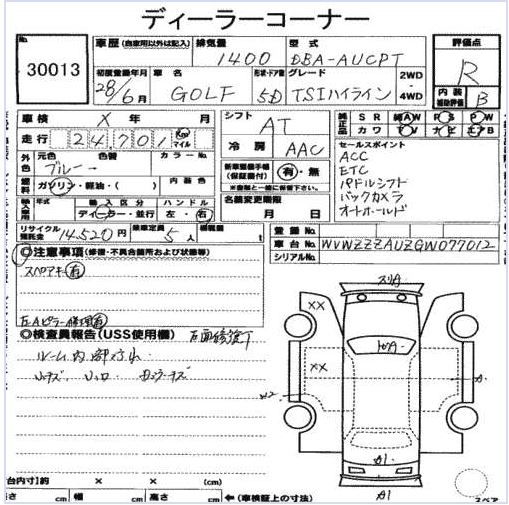 ディーラーコーナー
No. 30013
車歴 (自家用以外は記入) 排気量 1400 型式 DBA-AUCPT
評価点 R
内装補助評価 B
初度登録年月 28/6月 車名 GOLF 形状・ドア数 5D グレード TSIハイライン 2WD・4WD
車検 X 年 月
シフト AT
純正品 SR 純AW PS PW
カワ TV ナビ エアB
走行 24,701 km マイル
冷房 AAC
セールスポイント
ACC
ETC
パドルシフト
バックカメラ
オートホールド
外色 元色 ブルー 色替 カラーNo.
燃料 ガソリン・軽油・( ) 内装色
新車整備手帳(保証書付) 有・無
※書類と一緒に保管下さい
輸入車用 年式 輸入区分 ディーラー・並行 ハンドル 左・右
名義変更期限 月 日
リサイクル預託金 14,520円 乗車定員 5人 積載量
登録No.
車台No. WVWZZZAUZGW077012
シリアルNo.
◎注意事項 (修復・不具合箇所および状態等)
スペアキー有
右Aピラー修理有
◎検査員報告(USS使用欄) 右面修理下
ルーム内部汚れ
スリA
XX
トルA
XX
A
W2
A1
A1
(荷台内寸)約 × × (cm)
長さ cm 幅 cm 高さ cm ←(車検証上の寸法)
スペア